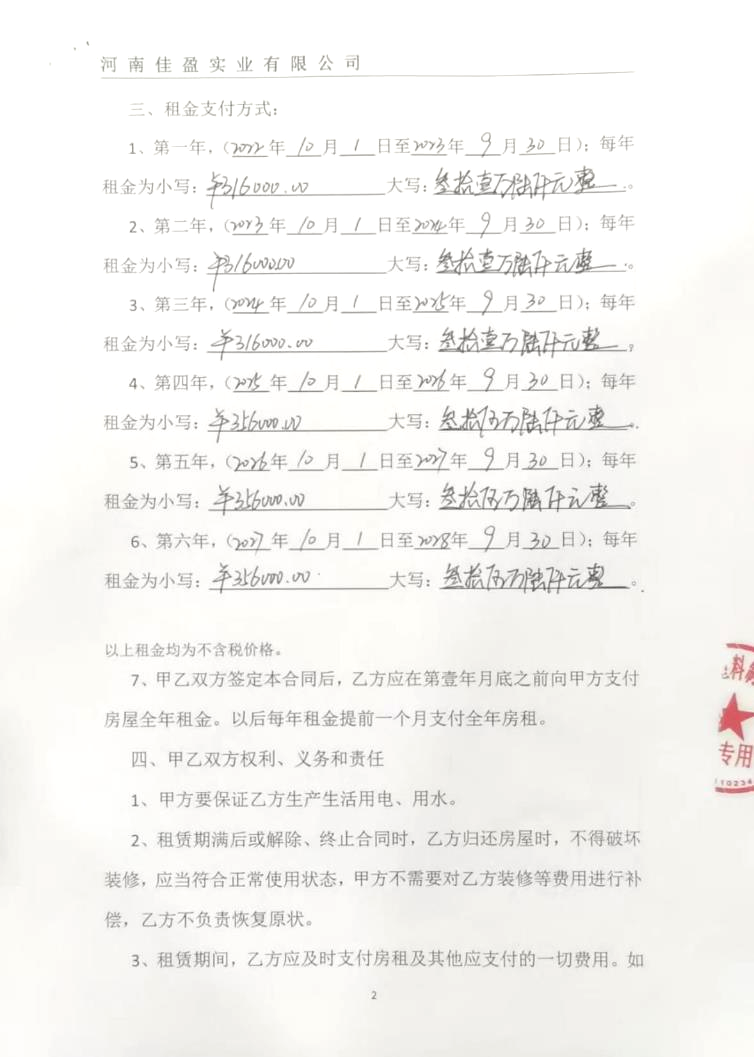 河南佳盈实业有限公司
三、租金支付方式：
1、第一年，（2022年10月1日至2023年9月30日）；每年
租金为小写：¥316000.00大写：叁拾壹万陆仟元整。
2、第二年，（2023年10月1日至2024年9月30日）；每年
租金为小写：¥316000.00大写：叁拾壹万陆仟元整。
3、第三年，（2024年10月1日至2025年9月30日）；每年
租金为小写：¥316000.00大写：叁拾壹万陆仟元整，
4、第四年，（2025年10月1日至2026年9月30日）；每年
租金为小写：¥356000.00大写：叁拾伍万陆仟元整。
5、第五年，（2026年10月1日至2027年9月30日）；每年
租金为小写：¥356000.00大写：叁拾伍万陆仟元整。
6、第六年，（2027年10月1日至2028年9月30日）；每年
租金为小写：¥356000.00大写：叁拾伍万陆仟元整。
以上租金均为不含税价格。
7、甲乙双方签定本合同后，乙方应在第壹年月底之前向甲方支付
房屋全年租金。以后每年租金提前一个月支付全年房租。
四、甲乙双方权利、义务和责任
1、甲方要保证乙方生产生活用电、用水。
2、租赁期满后或解除、终止合同时，乙方归还房屋时，不得破坏
装修，应当符合正常使用状态，甲方不需要对乙方装修等费用进行补
偿，乙方不负责恢复原状。
3、租赁期间，乙方应及时支付房租及其他应支付的一切费用。如
2
科
专用
10234